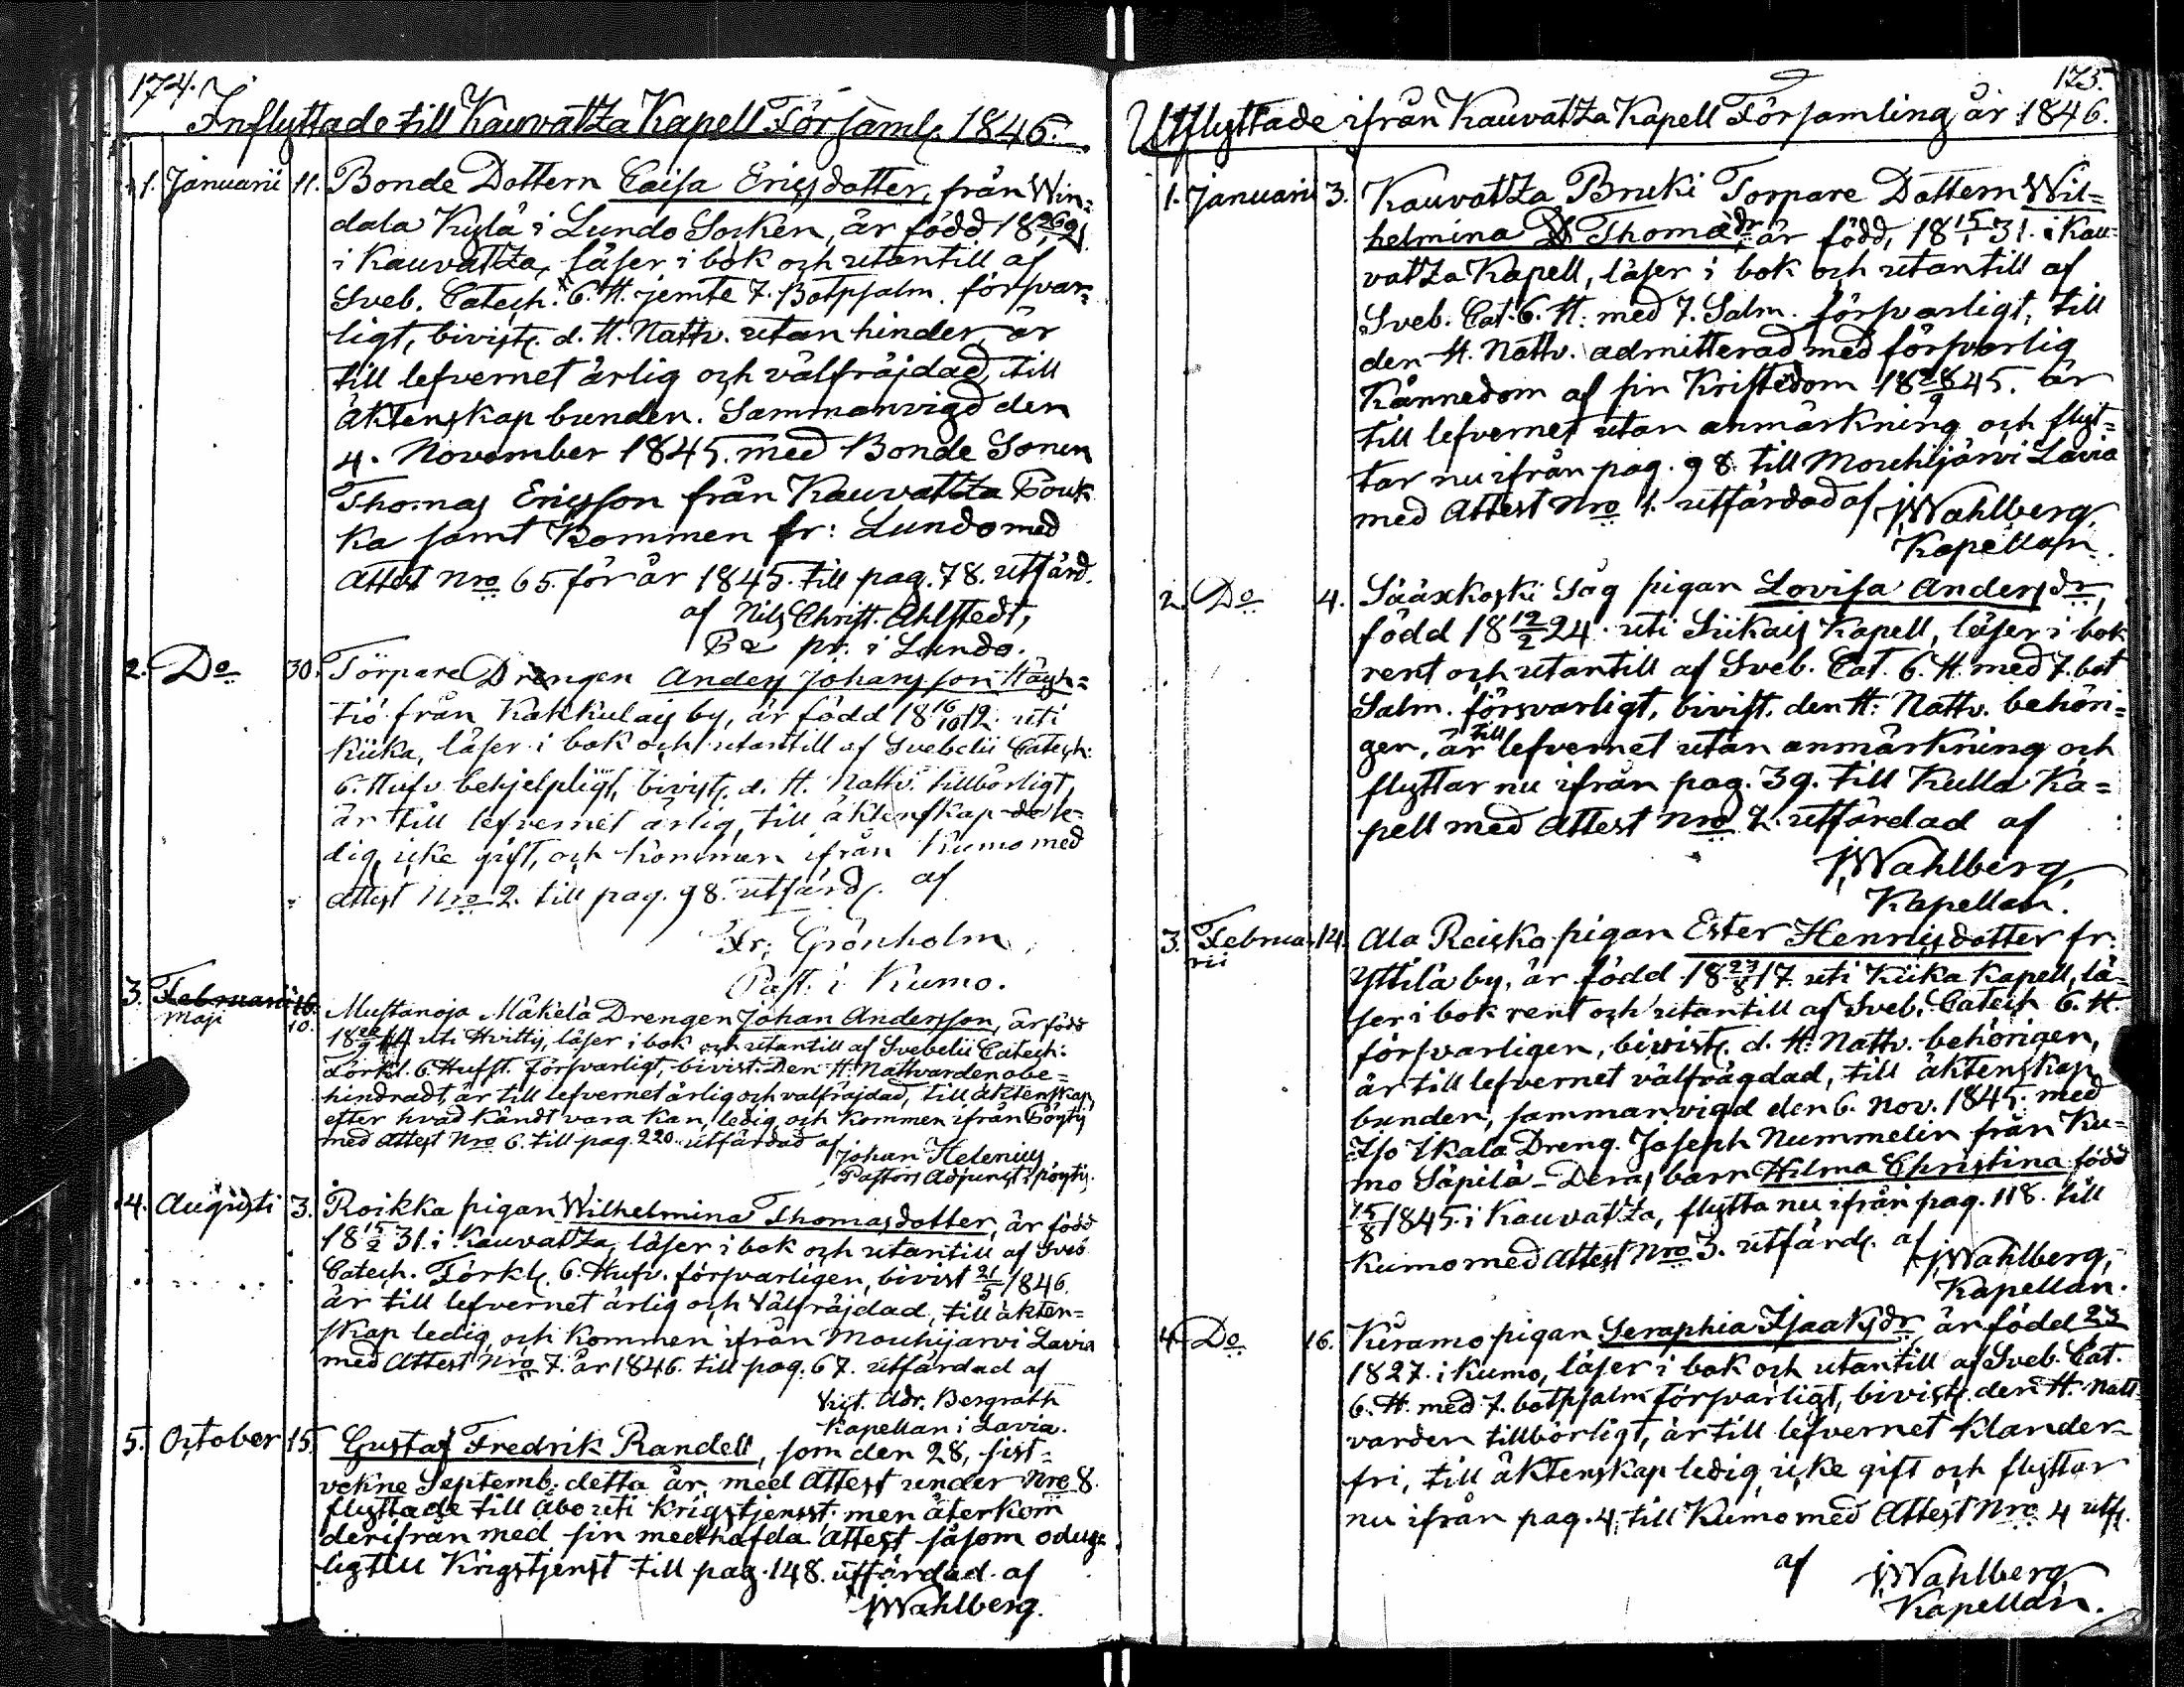 174.
Inflyttade till Kauvatza Kapell Församl. 1846.
1. Januarii 11. Bonde Dottern Caisa Ericsdotter, från Win=
dala Kylä i Lundo Socken, är född 18 26/ 21.
i Kauvatza, läser i bok och utantill af
Sveb. Catech. 6. H. jemte 7. Botpsalm. försvar=
ligt, bivist. d. H. Nattv. utan hinder, är
till lefvernet ärlig och välfräjdad, till
äktenskap bunden. Sammanvigd den
4. November 1845. med Bonde Sonen
Thomas Ericsson från Kauvatza Pouk
ka samt kommen fr: Lundo med
Attest Nro 65. för år 1845. till pag. 78. utfärd.
af Nils Christ. Ahlstedt,
pr. i Lundo.
2. Do 30. Torpare Drengen Anders Johansson Häyh=
tiö från Kakkulais by, är född 18 16/10 12. uti
Kiika, läser i bok och utantill af Svebelii Catech:
6. Hufv. behjelpligt, bivist. d. H. Nattv. tillbörligt,
är till lefvernet ärlig, till äktenskap de le=
dig, icke gift, och kommen ifrån Kumo med
Attest Nro 2. till pag. 98. utfärd. af
Fr. Grönholm
Past. i Kumo.
3. Februarii 16.
Maji 10. Mustanoja Mäkelä Drengen Johan Andersson, är född
18 14 uti Hvittis, läser i bok och utantill af Svebelii Catech:
Förkl. 6. Hufst. försvarligt, bivist. Den H. Nattvarden obe=
hindradt, är till lefvernet ärlig och välfräjdad, till äktenskap,
efter hvad kändt vara kan, ledig, och kommen ifrån Pöytis
med Attest Nro 6. till pag. 220. utfärdad af
Johan Helenius
Pastors Adjunct i pöytis.
4. Augusti 3. Roikka pigan Wilhelmina Thomasdotter, är född
18 15/2 31. i Kauvatza, läser i bok och utantill af Sveb.
Catech. Förkl. 6. Hufv. försvarligen, bivist 21/5 1846.
är till lefvernet ärlig och Välfräjdad, till äkten=
skap ledig, och kommen ifrån Mouhijärvi Lavia
med Attest Nro 7. år 1846. till pag. 67. utfärdad af
Adr. Bergroth
Kapellan i Lavia.
5. October 15. Gustaf Fredrik Randell, som den 28, sist=
vekne Septemb. detta år, med Attest under Nro 8.
flyttade till Åbo uti Krigstjenst, men återkom
derifrån med sin medhafda Attest såsom odug=
lig till Krigstjenst till pag. 148. utfärdad af
J Wahlberg.
175.
Utflyttade ifrån Kauvatza Kapell Församling år 1846.
1. Januarii 3. Kauvatza Bruki Torpare Dottern Wil=
helmina Thomædr: är född, 18 15/1 31. i Kau=
vatza Kapell, läser i bok och utantill af
Sveb. Cat. 6. H. med 7. Salm. försvarligt, till
den H. Nattv. admitterad med försvarlig
Kännedom af sin Kristedom 18 28/9 45. är
till lefvernet utan anmärkning och flyt=
tar nu ifrån pag. 98. till Mouhijärvi Lavia
med Attest Nro 1. utfärdad af J Wahlberg,
Kapellan.
2. Do 4. Sääxkoski Såg pigan Lovisa Andersdr,
född 18 12/2 24. uti Siikais Kapell, läser i bok
rent och utantill af Sveb. Cat. 6. H. med 7. bot
Salm. försvarligt, bivist. den H: Nattv. behöri=
gen, är till lefvernet utan anmärkning och
flyttar nu ifrån pag. 39. till Kulla Ka=
pell med Attest Nro 2. utfärdad af
J Wahlberg,
Kapellan.
3. Februa 14. Ala Reiska pigan Ester Henricsdotter fr.
rii Yttilä by, är född 18 23/8 17. uti Kiika Kapell, lä=
ser i bok rent och utantill af Sveb. Catech 6. H.
försvarligen, bivist. d. H: Nattv. behörigen,
är till lefvernet välfrägdad, till äktenskap
bunden, sammanvigd den 6. Nov. 1845. med
Iso Ikala Dreng. Joseph Nummelin från Ku=
mo Säpilä - Deras barn Hilma Christina född
15/8 1845. i Kauvatza, flytta nu ifrån pag. 118. till
Kumo med Attest Nro 3. utfärd. af J Wahlberg,
Kapellan.
4. Do 16. Kiiramo pigan Seraphia Isaaksdr, är född 23
1827. i Kumo, läser i bok och utantill af Sveb. Cat.
6. H. med 7. botpsalm försvarligt, bivist. den H. Natt
varden tillbörligt, är till lefvernet klander=
fri, till äktenskap ledig, icke gift och flyttar
nu ifrån pag. 4, till Kumo med Attest Nro 4 utf.
af J Wahlberg
Kapellan.